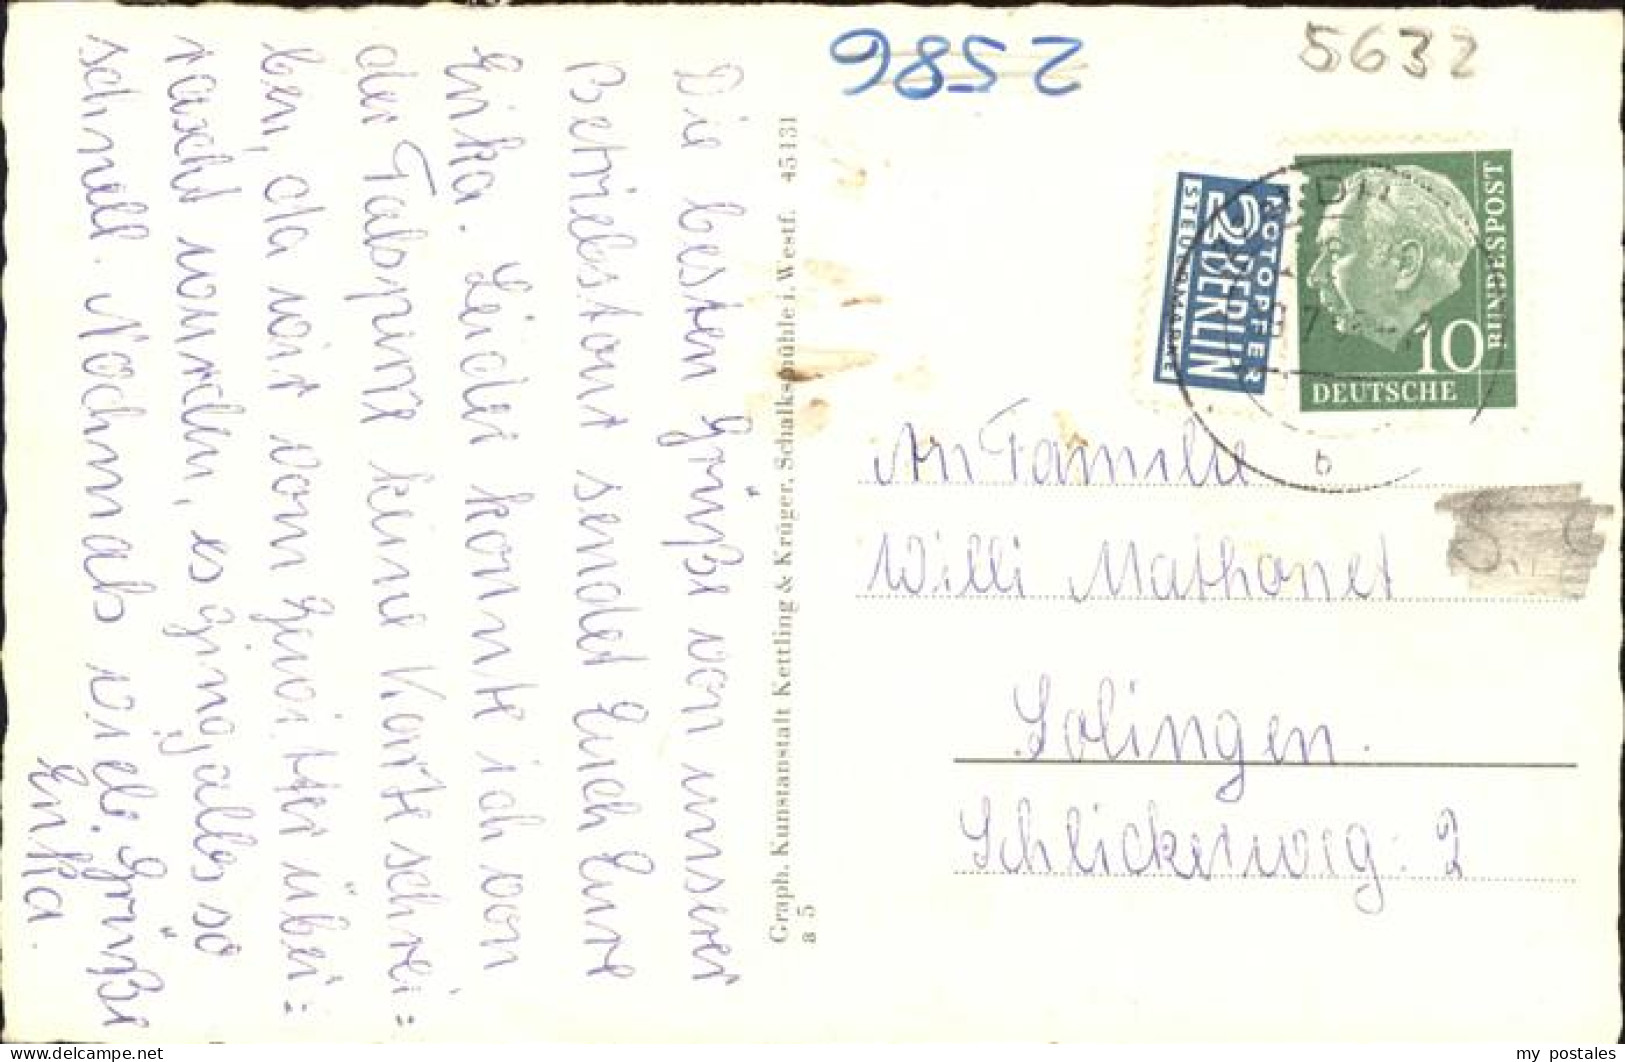 Die besten Grüße von unserer
Betriebstour sendet Euch Eure
Erika. Leider konnte ich von
der Talsperre keine Karte schrei=
ben, da wir vom Gewitter über=
rascht wurden, es ging alles so
schnell. Nochmals viele Grüße
Erika.
Graph. Kunstanstalt Kettling & Krüger, Schalksmühle i. Westf. 45131
a 5
2586
5632
NOTOPFER
2 BERLIN
STEUERMARKE
BUNDESPOST
10
DEUTSCHE
b
An Familie
Willi Mathonet
Solingen.
Schlickerweg: 2
my postales